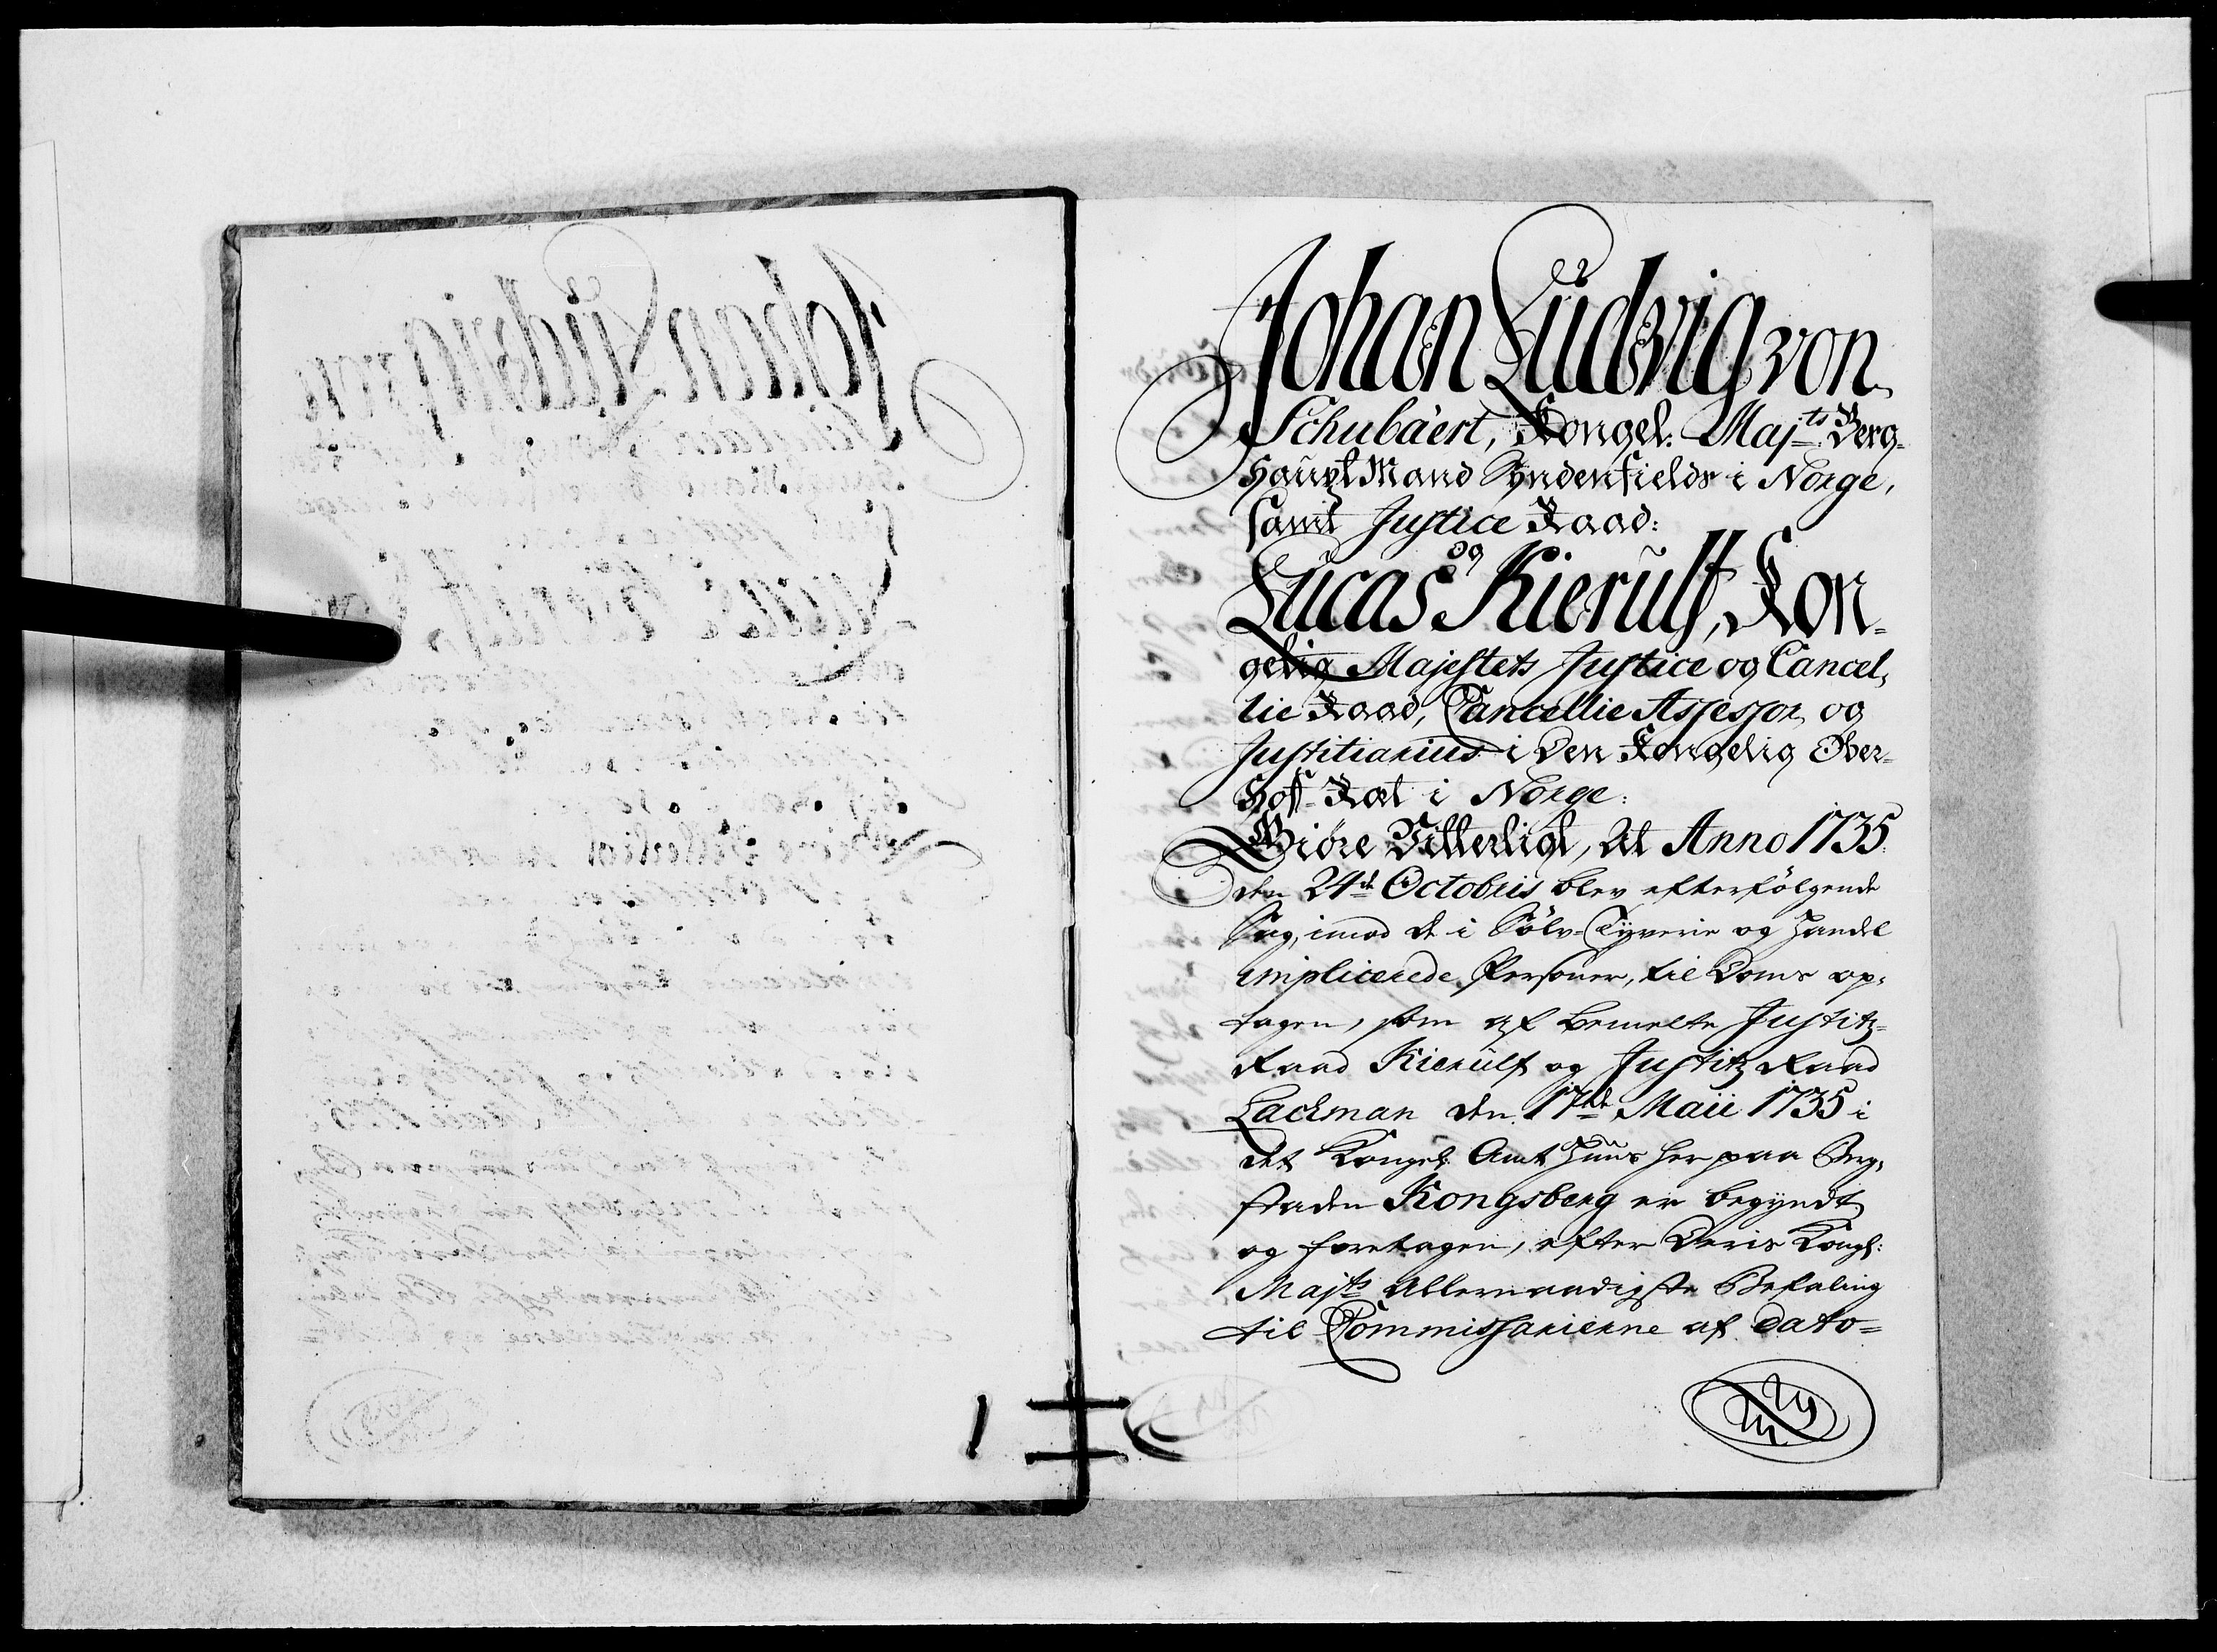 Johan Ludvig von
Schubaert, Kongel: Maj:ts Berg-
Haupt Mand Syndenfields i Norge,
samt Justice Raad:
og
Lucas Kierulf, Kon-
gelig Majestets Justice og Cancel,
lie Raad, Cancellie Assessor, og
Justitiarius i Den Kongelig Ober-
Hoff-Ræt i Norge:
Giøre Vitterligt, At Anno 1735
den 24de Octobris blev efterfölgende
Sag, imod de i Sölv-Tyverie og Handel
implicerede Persohner, til Doms op-
tagen, som af bemelte Justitz-
Raad Kierulf og Justitz Raad
Lachman den 17de Maii 1735 i
det Kongel: Amt Huus her paa Berg,
staden Kongsberg er begyndt
og foretagen, efter Deris Kongl:
Majts Allernaadigste Befaling
til Commissarierne af dato-
1